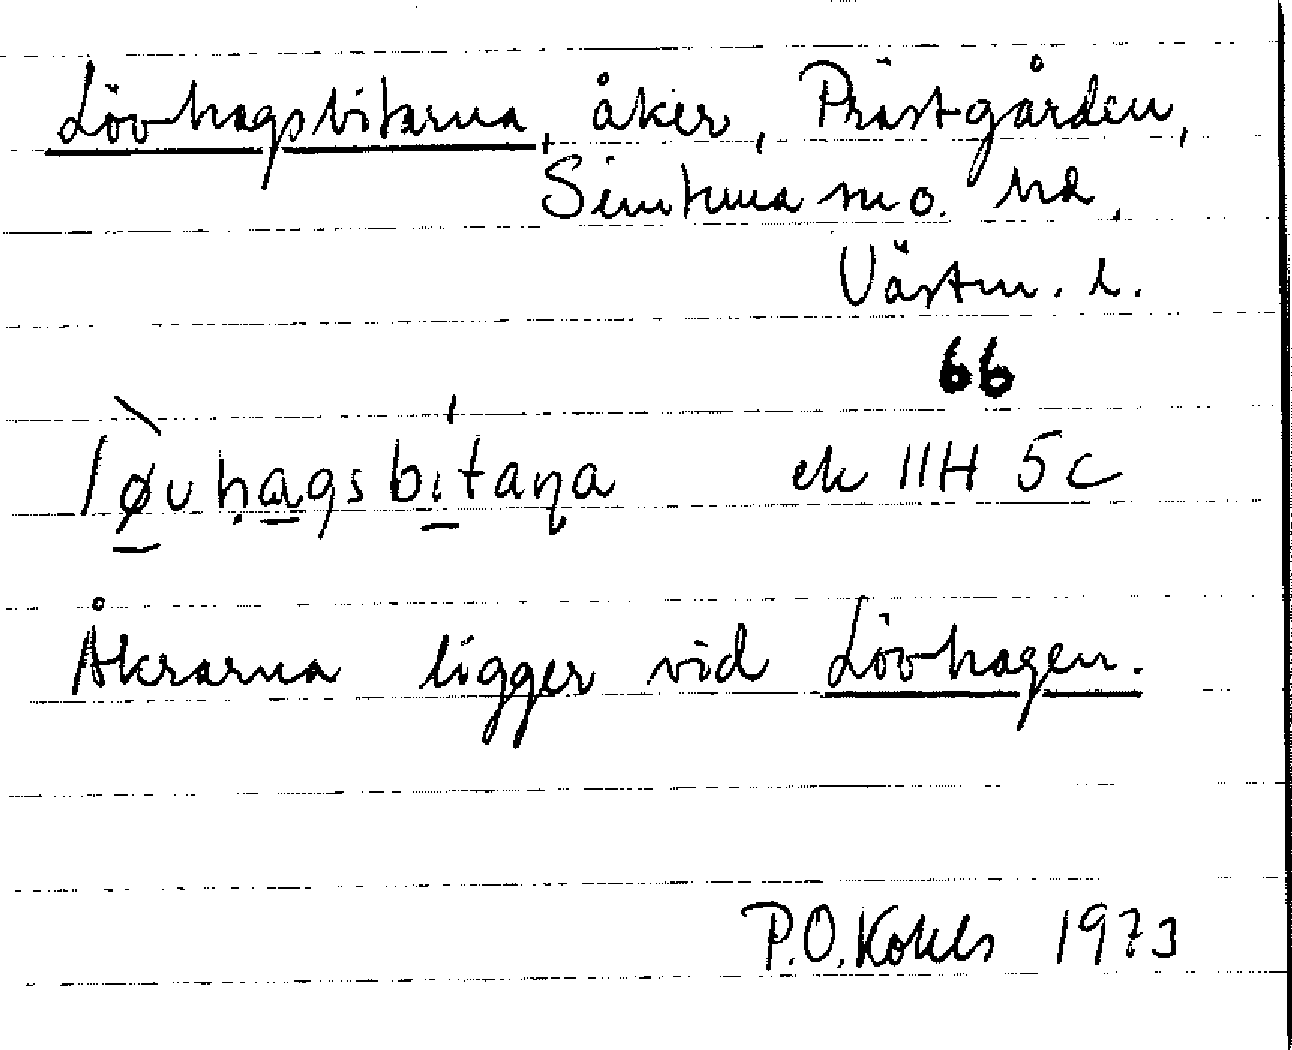 Lövhagsbitarna, åker, Prästgården,
Simtuna sn o. hd.
Västm. l.
66
løvhagsbitaṇa ek 11H 5c
Åkrarna ligger vid Lövhagen.
P.O. Kohls 1973